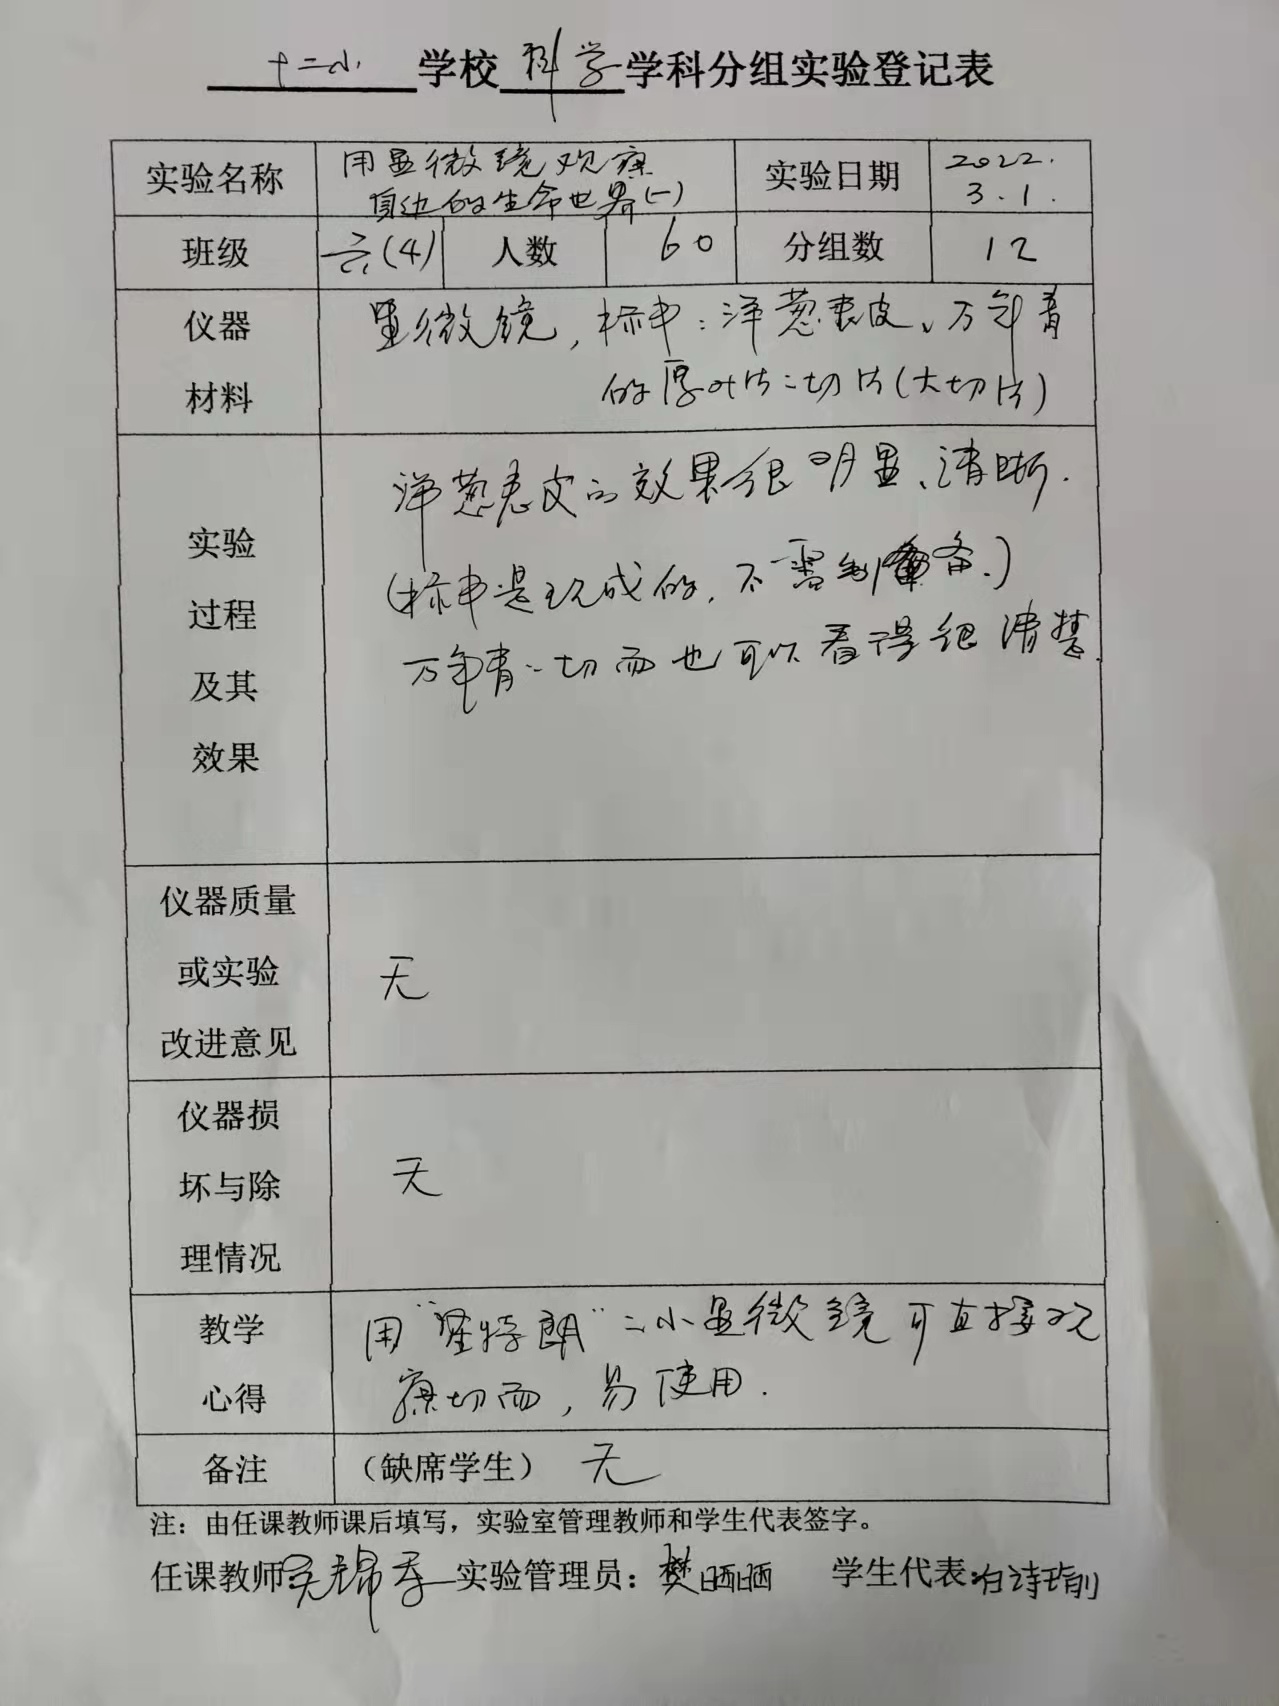 十二小 学校 科学 学科分组实验登记表
实验名称 用显微镜观察身边的生命世界(一) 实验日期 2022.3.1.
班级 六(4) 人数 60 分组数 12
仪器材料 显微镜,标本:洋葱表皮、万年青
的厚叶片之切片(大切片)
实验过程及其效果
洋葱表皮的效果很明显、清晰.
(标本是现成的,不需制备.)
万年青之切面也可以看得很清楚.
仪器质量或实验改进意见 无
仪器损坏与除理情况 无
教学心得 用“ 特朗”之小显微镜可直接观
察切面,易使用.
备注 (缺席学生) 无
注:由任课教师课后填写,实验室管理教师和学生代表签字。
任课教师 吴锦 实验管理员:樊晒晒 学生代表:白诗